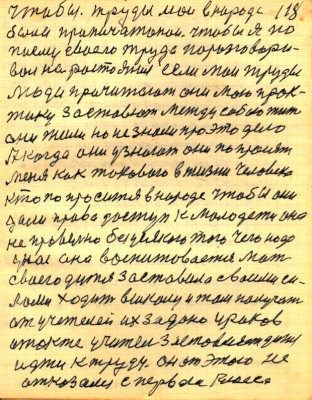 чтобы. труды мои в народе 118
были прапичатоной. чтобы я по
поему своего труда поразговари-
вал на растоянии если мои труды
люди прачитают они мою прок-
тику заставют между собою жит
они жили но незнали про это дело
А когда они узнают они попросят
меня как токового в жизни человека
кто попросится в народе чтобы они
дали права доступ к молодежи она
не правельно без усякого того чего надо
она воспитовается мат
своего дитя заставила своими си-
лами ходить в школу и там получат
от учителей их задано уроков
а тоже учителя заставили дитя
идти к труду. он от этого не
отказался с первого класса